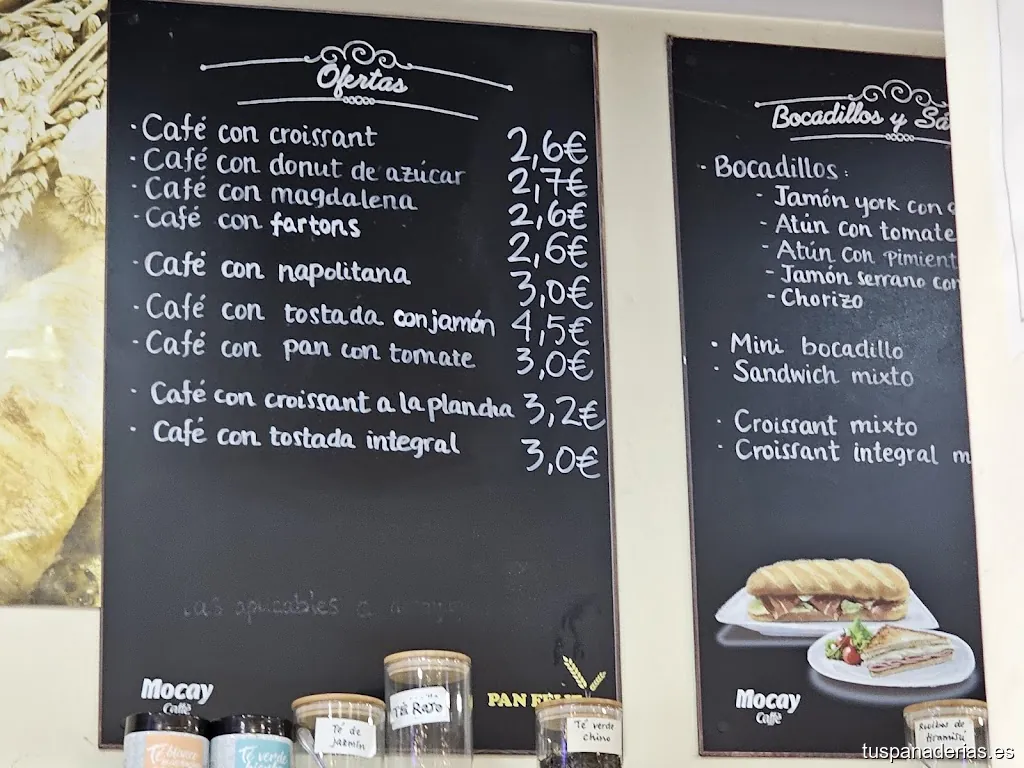 Ofertas
· Café con croissant 2,6€
· Café con donut de azúcar 2,7€
· Café con magdalena 2,6€
· Café con fartons 2,6€
· Café con napolitana 3,0€
· Café con tostada con jamón 4,5€
· Café con pan con tomate 3,0€
· Café con croissant a la plancha 3,2€
· Café con tostada integral 3,0€
Mocay
Caffè
PAN
Té blanco
Té verde
Té de
Jazmín
Té Rojo
Té verde
chino
Bocadillos y
- Bocadillos:
- Jamón york con
- Atún con tomate
- Atún con
- Jamón serrano con
- Chorizo
· Mini bocadillo
· Sandwich mixto
· Croissant mixto
· Croissant integral
Mocay
Caffè
Rooibos de
Tiramisú
tuspanaderias.es